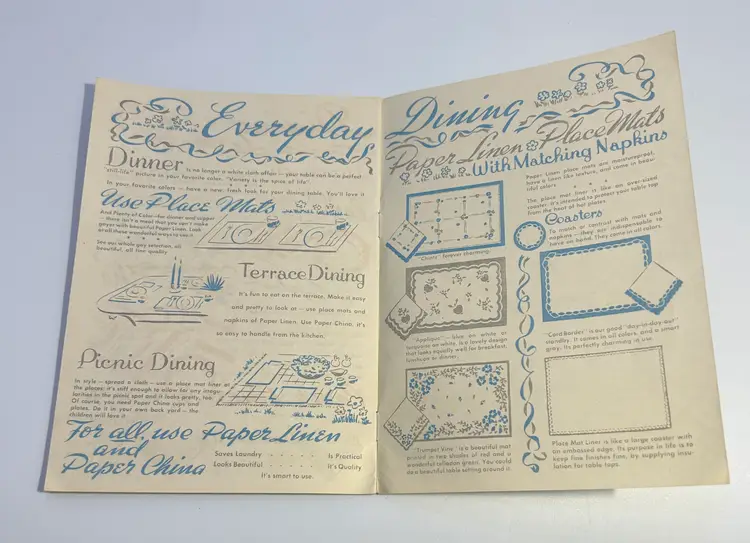 Everyday
Dinner is no longer a white cloth affair — your table can be a perfect
"still-life" picture in your favorite color. "Variety is the spice of life".
In your favorite colors — have a new, fresh look for your dining table. You'll love it
Use Place Mats
And Plenty of Color—for dinner and supper
— there isn't a meal that you can't make
gayer with beautiful Paper Linen. Look
at all these wonderful ways to use it
See our whole gay selection, all
beautiful, all fine quality
Terrace Dining
It's fun to eat on the terrace. Make it easy
and pretty to look at — use place mats and
napkins of Paper Linen. Use Paper China, it's
so easy to handle from the kitchen.
Picnic Dining
In style — spread a cloth — use a place mat liner at
the places; it's stiff enough to allow for any irregu-
larities in the picnic spot and it looks pretty, too.
Of course, you need Paper China cups and
plates. Do it in your own back yard — the
children will love it
For all use Paper Linen
and
Paper China
Saves Laundry - - - - - Is Practical
Looks Beautiful - - - - - It's Quality
It's smart to use.
Dining
Paper Linen Place Mats
With Matching Napkins
Paper Linen place mats are moistureproof,
have a linen like texture, and come in beau-
tiful colors
The place mat liner is like an over-sized
coaster. It's intended to protect your table top
from the heat of hot plates.
"Cherry" forever charming.
Coasters
To match or contrast with mats and
napkins — they are indispensable to
have on hand. They come in all colors
"Applique" — blue on white or
turquoise on white, is a lovely design
that looks equally well for breakfast,
luncheon or dinner.
"Cord Border" is our good "day-in-day-out"
standby. It comes in all colors, and a smart
grey. Its perfectly charming in use.
"Trumpet Vine" is a beautiful mat
printed in two shades of red and a
wonderful reflexion green. You could
do a beautiful table setting around it.
Place Mat Liner is like a large coaster with
an embossed edge. Its purpose in life is to
keep fine finishes fine, by supplying insu-
lation for table tops.